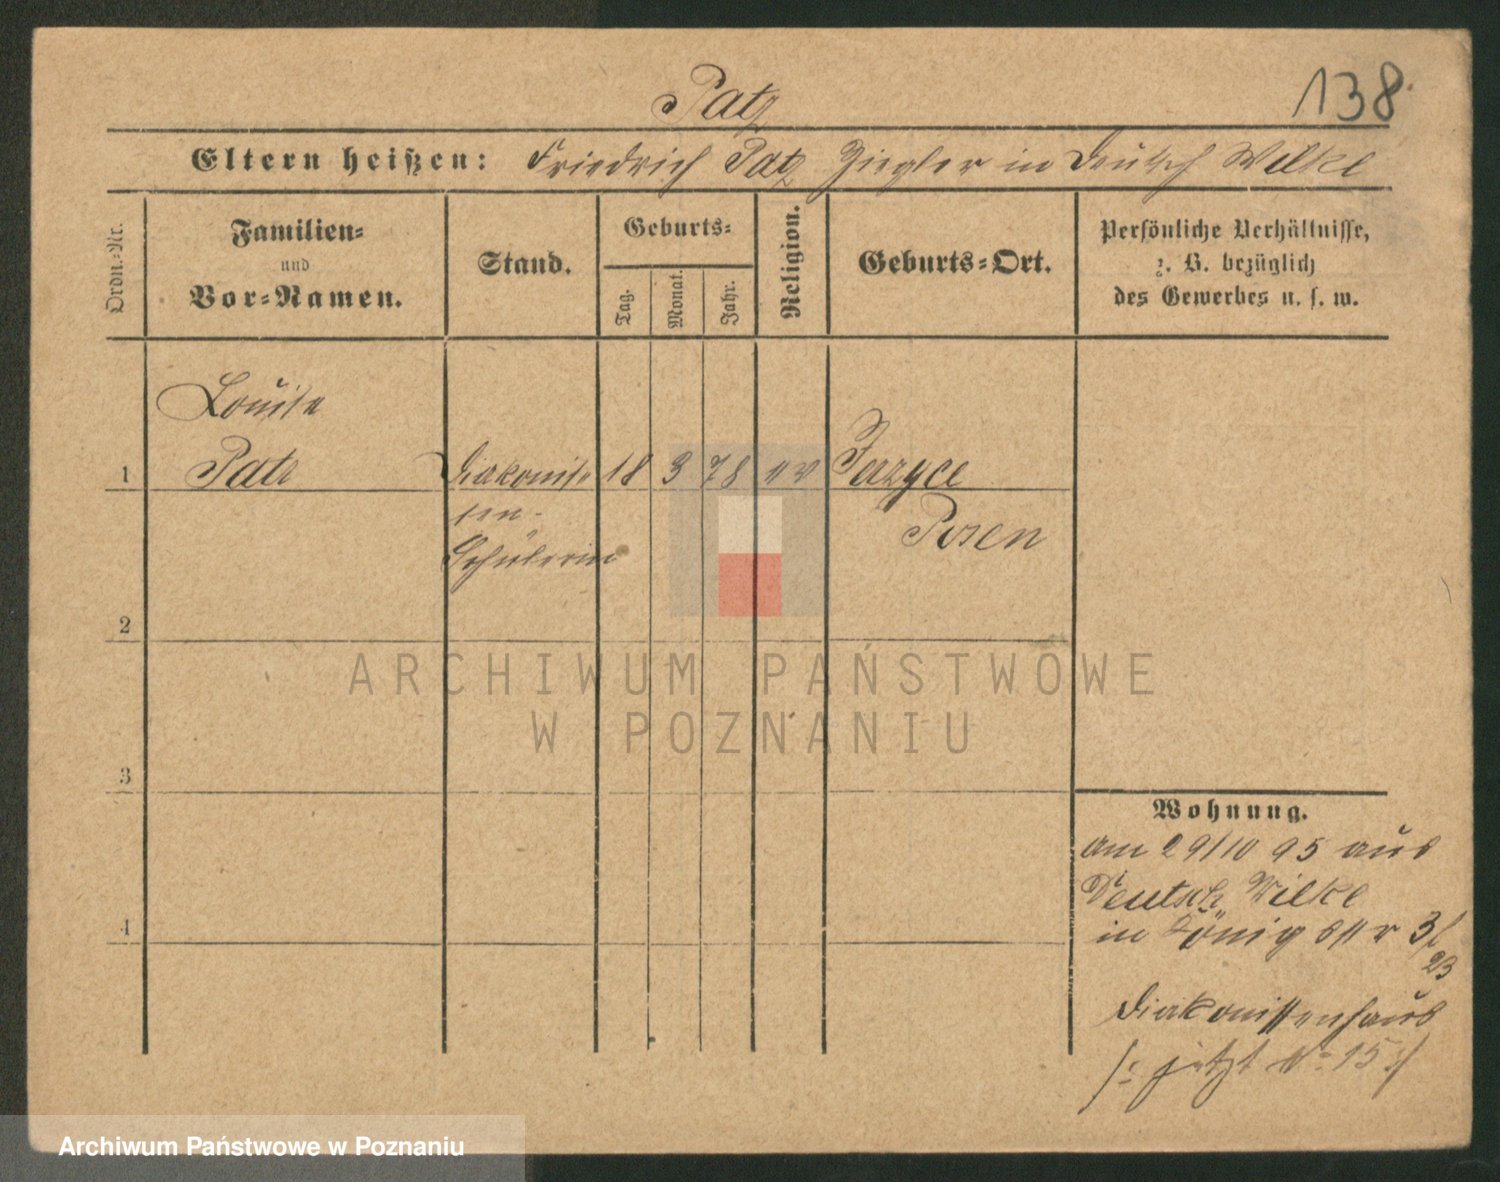 Patz
138
Eltern heißen: Friedrich Patz Ziegler in Deutsch Wilke
Ordn.-Nr.
Familien-
und
Vor-Namen.
Stand.
Geburts-
Tag.
Monat.
Jahr.
Religion.
Geburts-Ort.
Persönliche Verhältnisse,
z. B. bezüglich
des Gewerbes u. s. w.
Louise
1 Patz Diakonis 18 3 78 ev Jerzyce
sen-
Schülerin
Posen
2
3
4
Wohnung.
am 29/10 95 aus
Deutsch Wilke
in Königsstr 3/
23
Diakonissenhaus
/: jetzt No 15 :/
ARCHIWUM PAŃSTWOWE
W POZNANIU
Archiwum Państwowe w Poznaniu